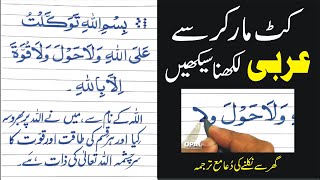 بِسْمِ اللهِ تَوَكَّلْتُ
عَلَى اللهِ وَلَا حَوْلَ وَلَا قُوَّةَ
اِلَّا بِاللهِ۔
اللہ کے نام سے، میں نے اللہ پر بھروسہ
کیا اور ہر قسم کی طاقت اور قوت کا
سرچشمہ اللہ تعالٰی کی ذات ہے۔
کٹ مارکر سے
عربی لکھنا سیکھیں
وَلَا حَوْلَ وَلَا
گھر سے نکلنے کی دُعا مع ترجمہ